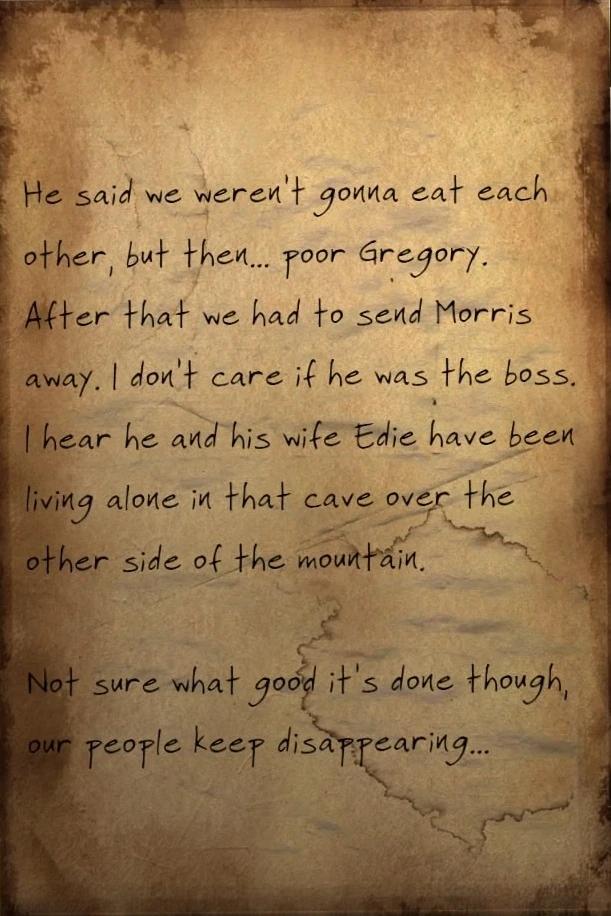 He said we weren't gonna eat each
other, but then... poor Gregory.
After that we had to send Morris
away. I don't care if he was the boss.
I hear he and his wife Edie have been
living alone in that cave over the
other side of the mountain.
Not sure what good it's done though,
our people keep disappearing...